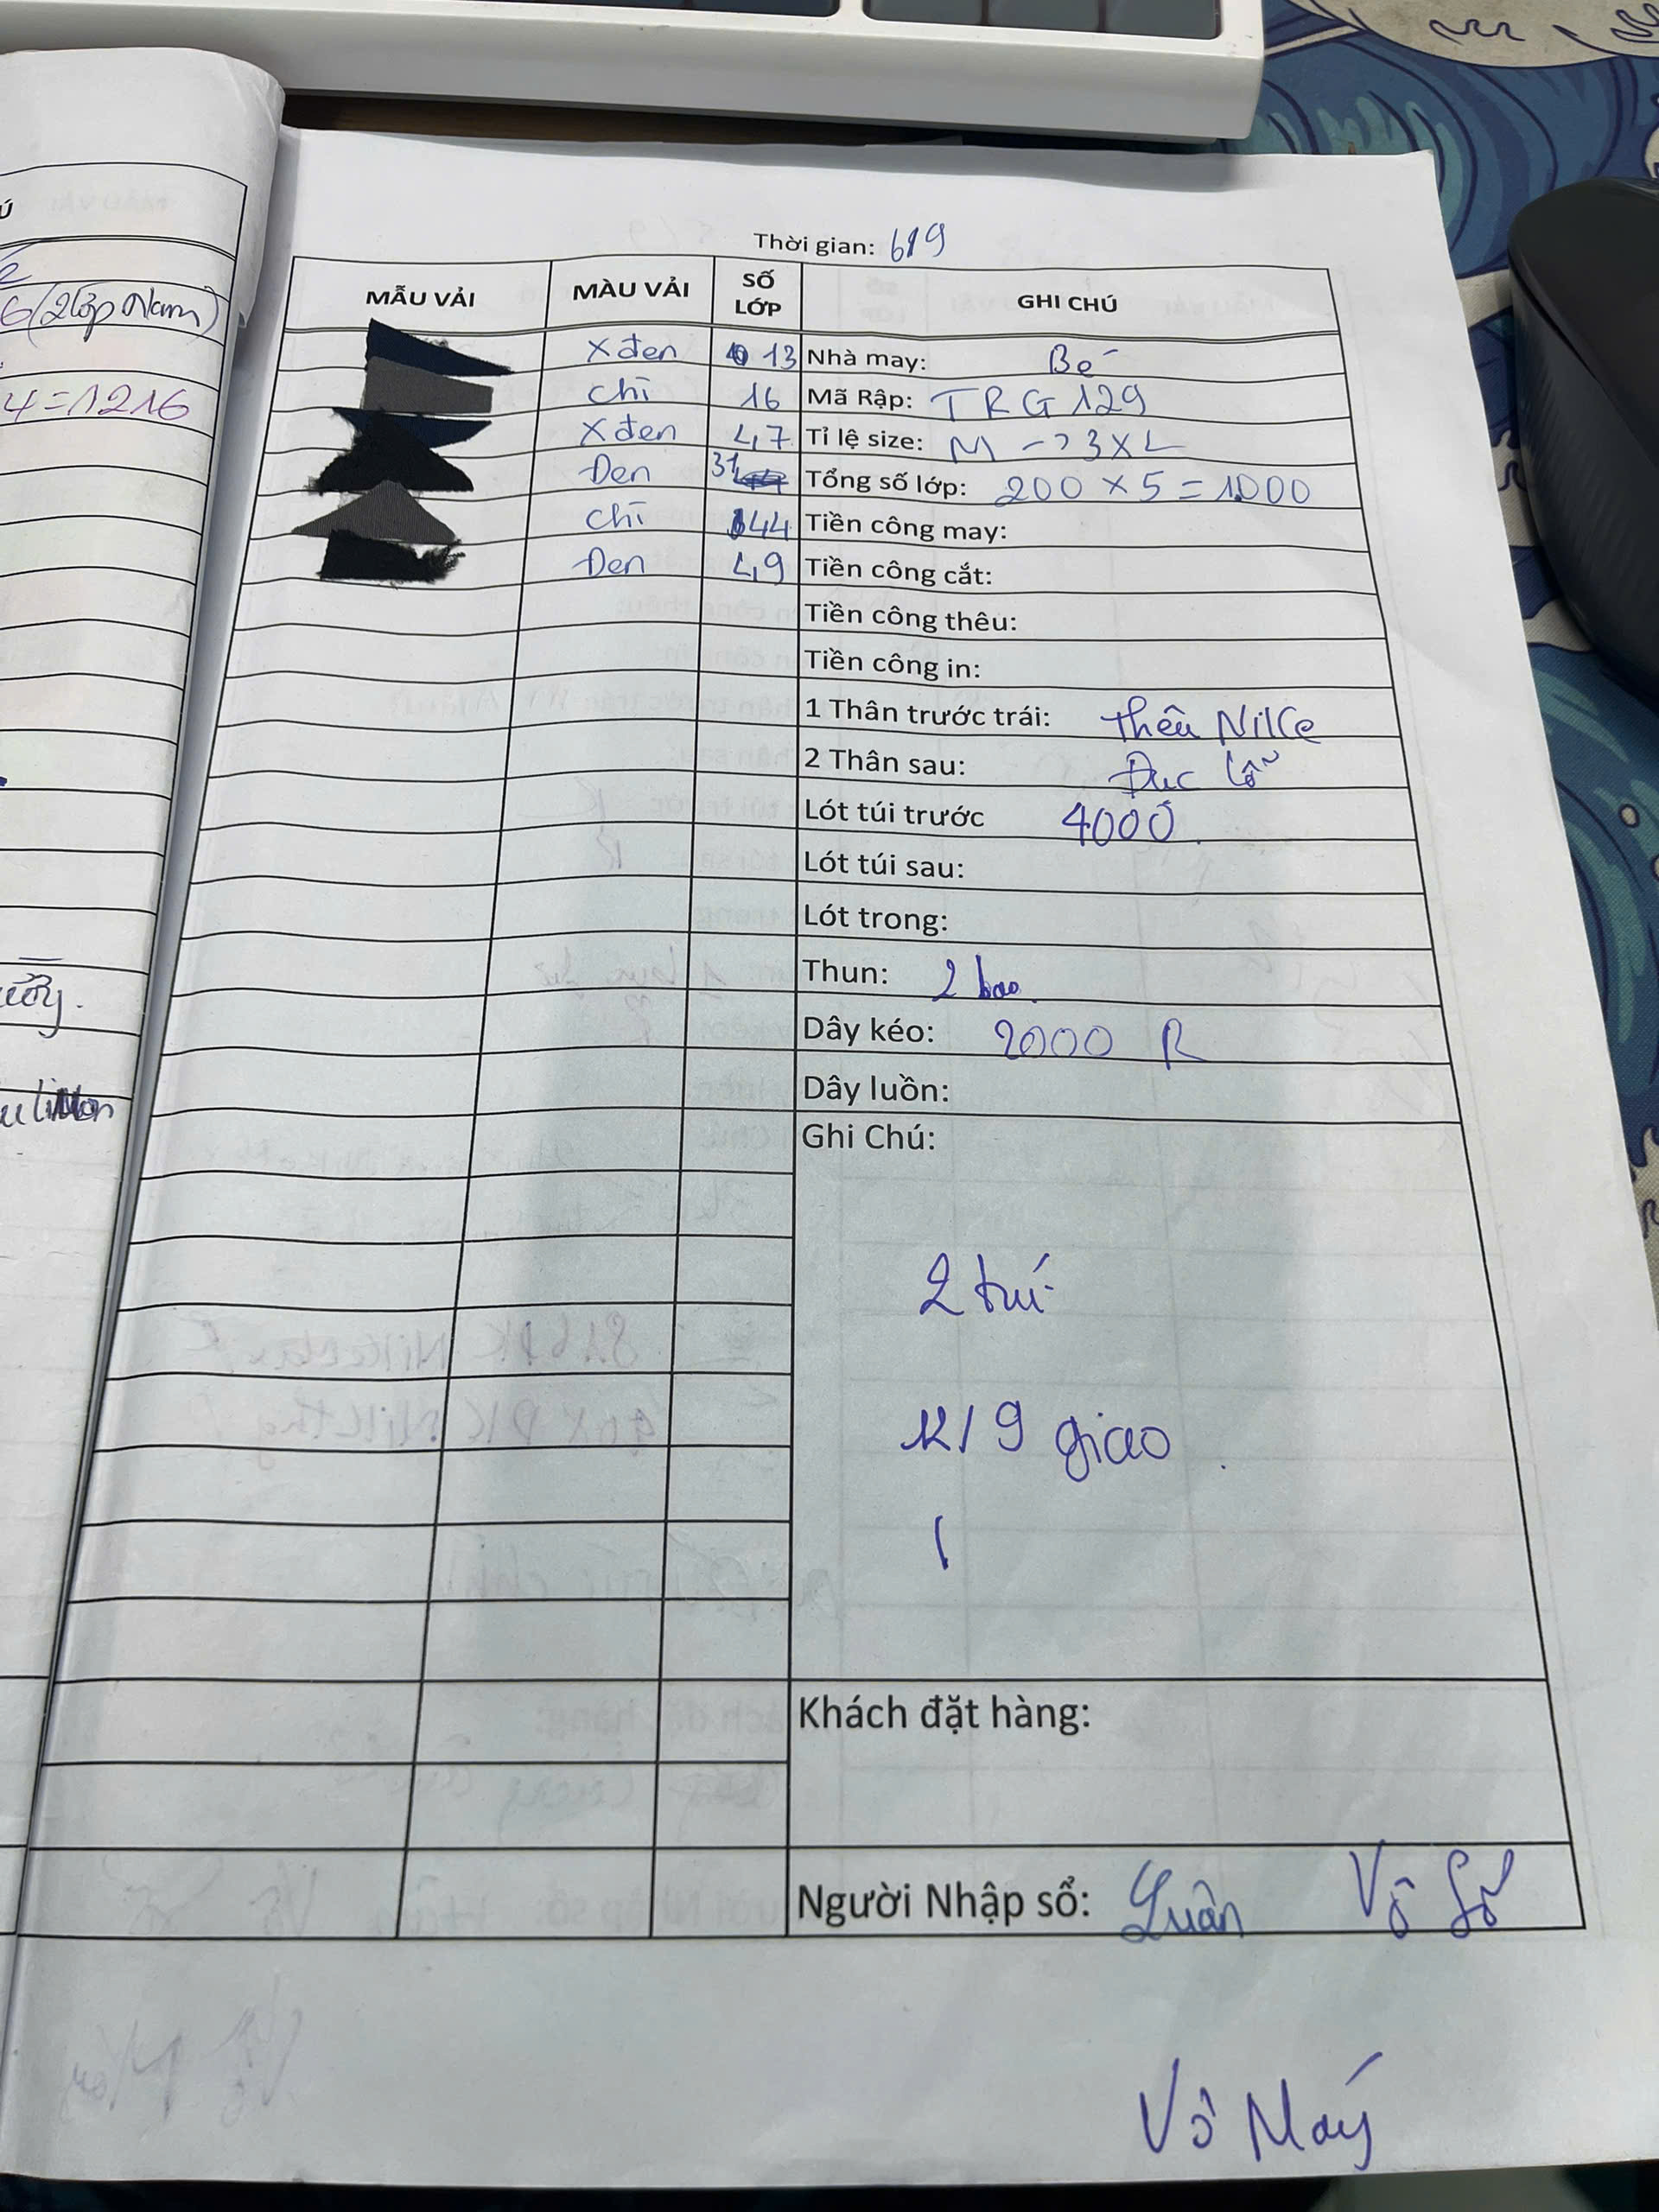 Ú
6 (2 lớp Nam)
4 = 1216
Thời gian: 6/9
MẪU VẢI MÀU VẢI SỐ LỚP GHI CHÚ
X đen 13 Nhà may: Bé
Chì 16 Mã Rập: TRG 129
X đen 47 Tỉ lệ size: M -> 3XL
Đen 31 Tổng số lớp: 200 x 5 = 1000
Chì 44 Tiền công may:
Đen 49 Tiền công cắt:
Tiền công thêu:
Tiền công in:
1 Thân trước trái: thêu Nike
2 Thân sau: Đục lỗ
Lót túi trước 4000
Lót túi sau:
Lót trong:
Thun: 2 bao
Dây kéo: 2000 R
Dây luồn:
Ghi Chú:
2 túi
12/9 giao
Khách đặt hàng:
Người Nhập sổ: Luân Vô Sổ
Vô Máy